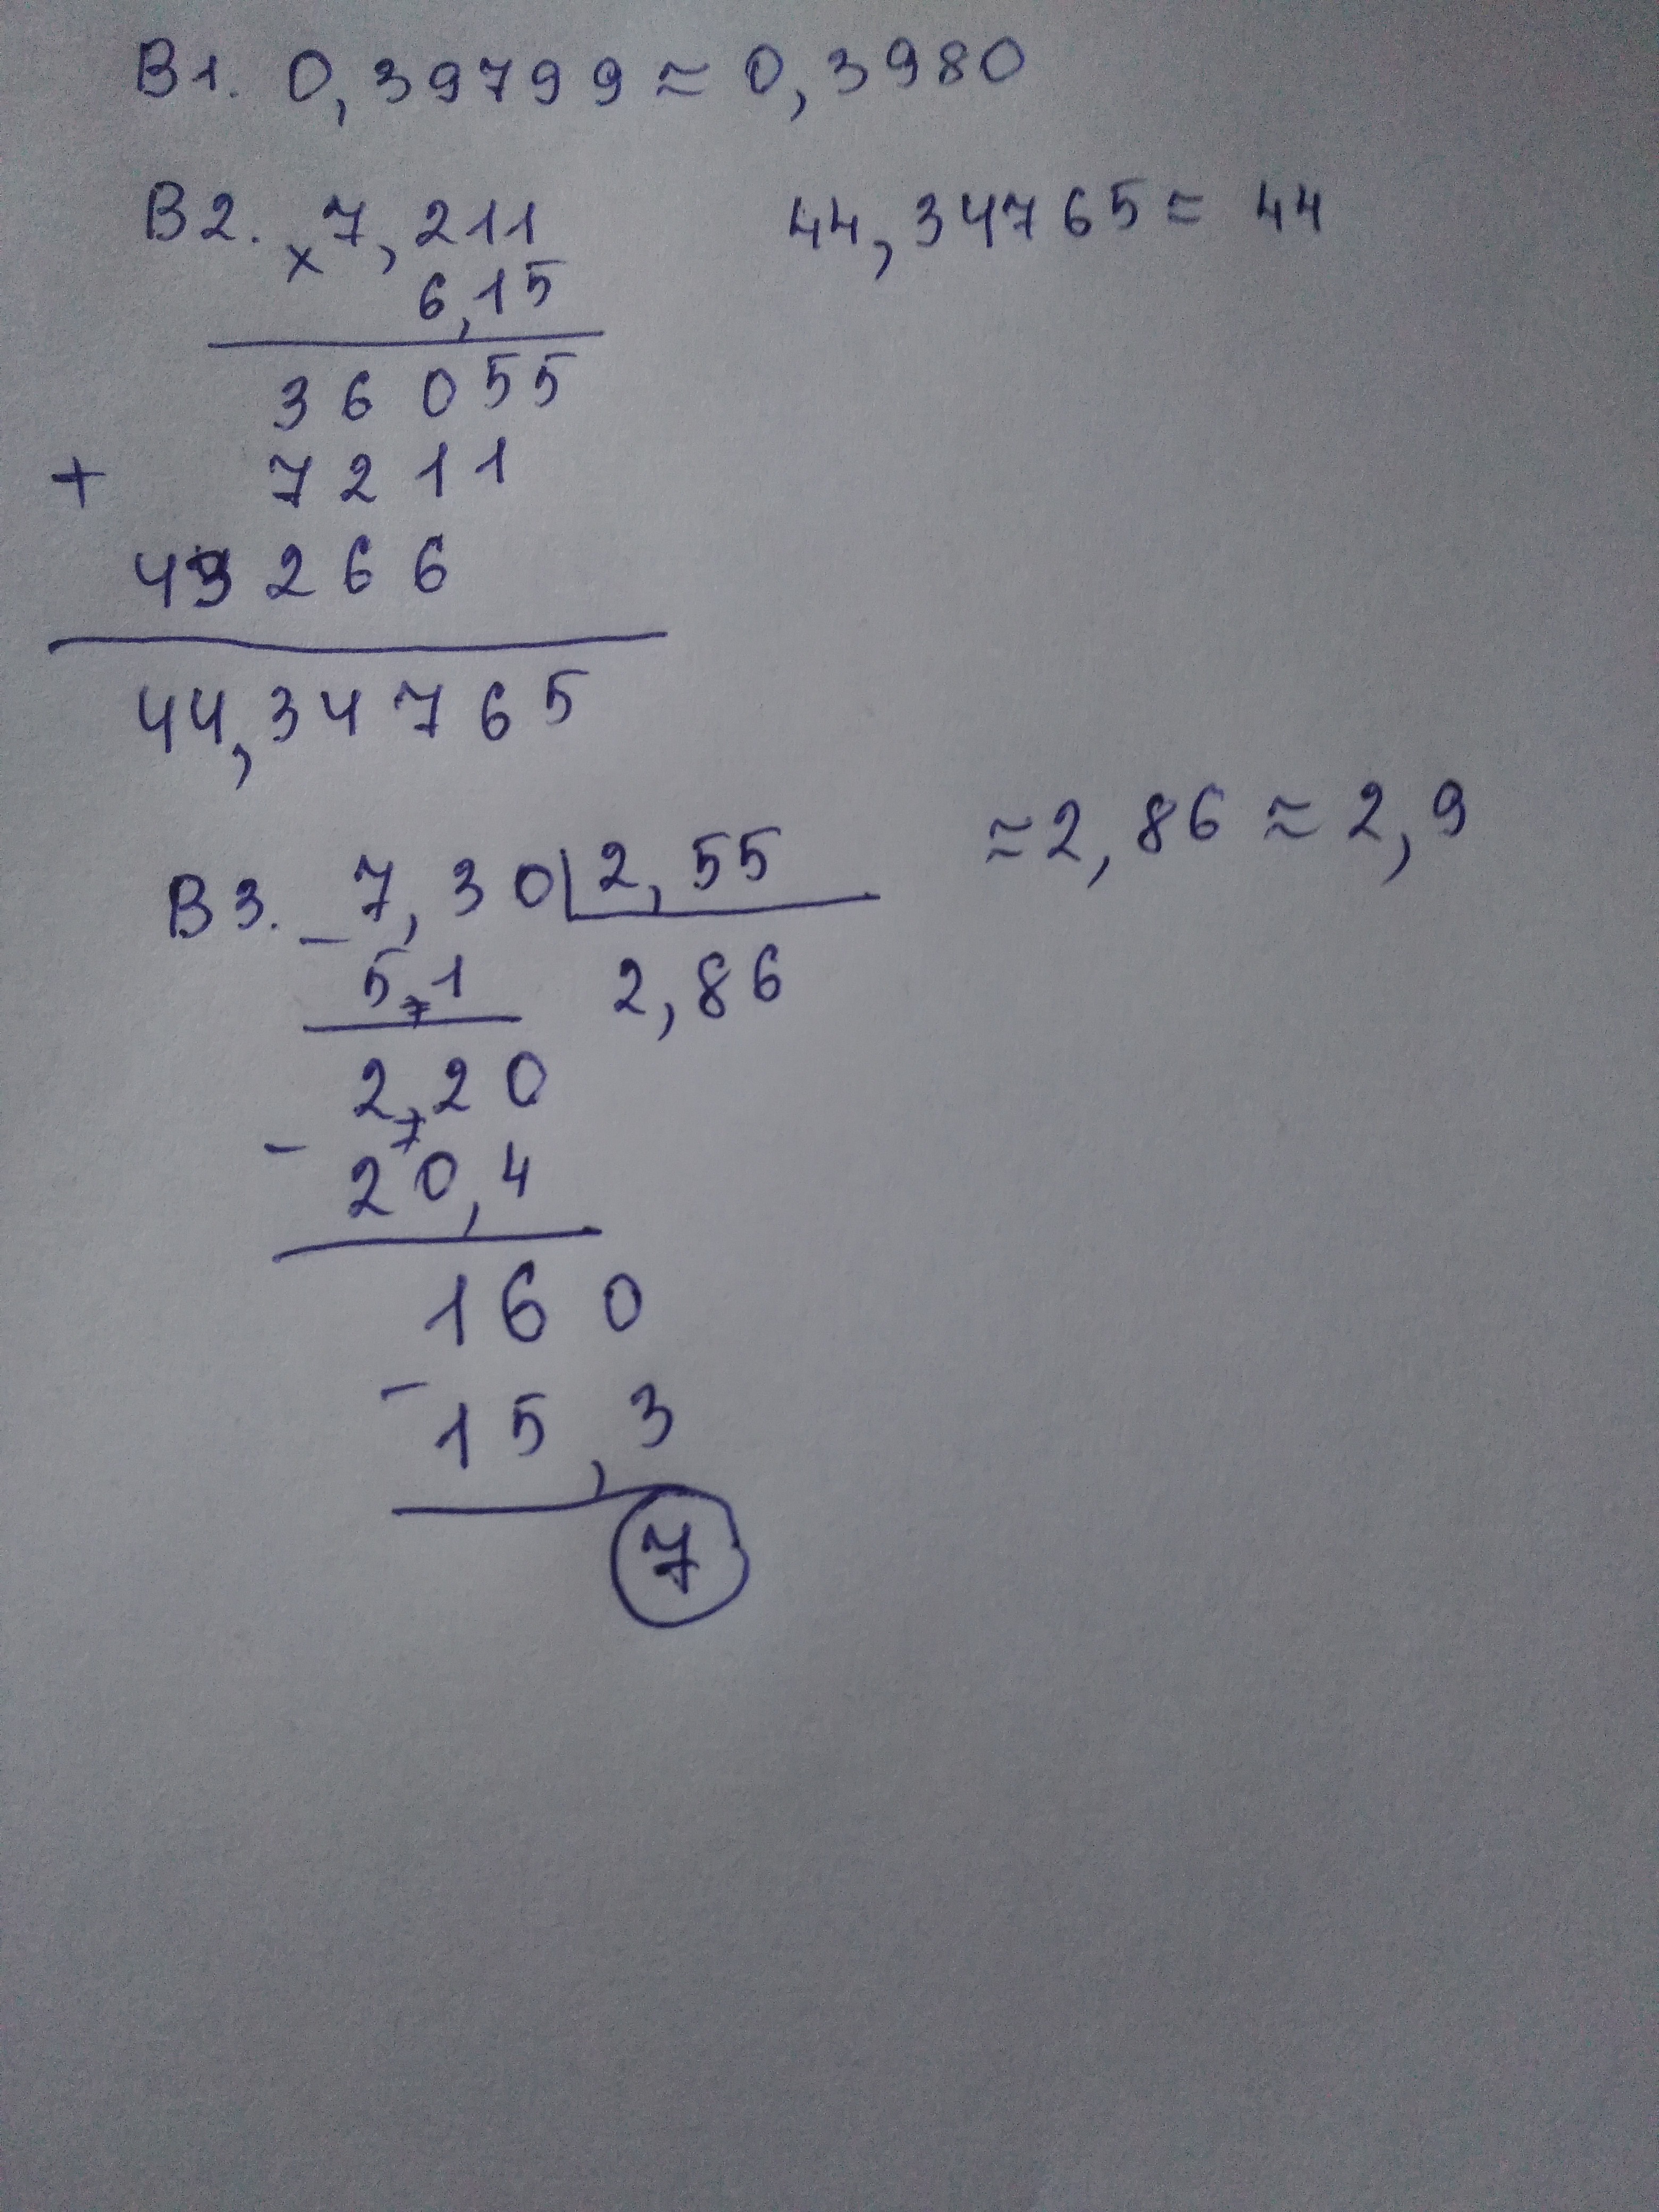 В1. 0,39799 ≈ 0,3980
В2. × 7,211
6,15
36055
+ 7211
43266
44,34765
44,34765 ≈ 44
В3. - 7,30 | 2,55
5,1 2,86
2,20
- 20,4
160
- 15,3
7
≈ 2,86 ≈ 2,9